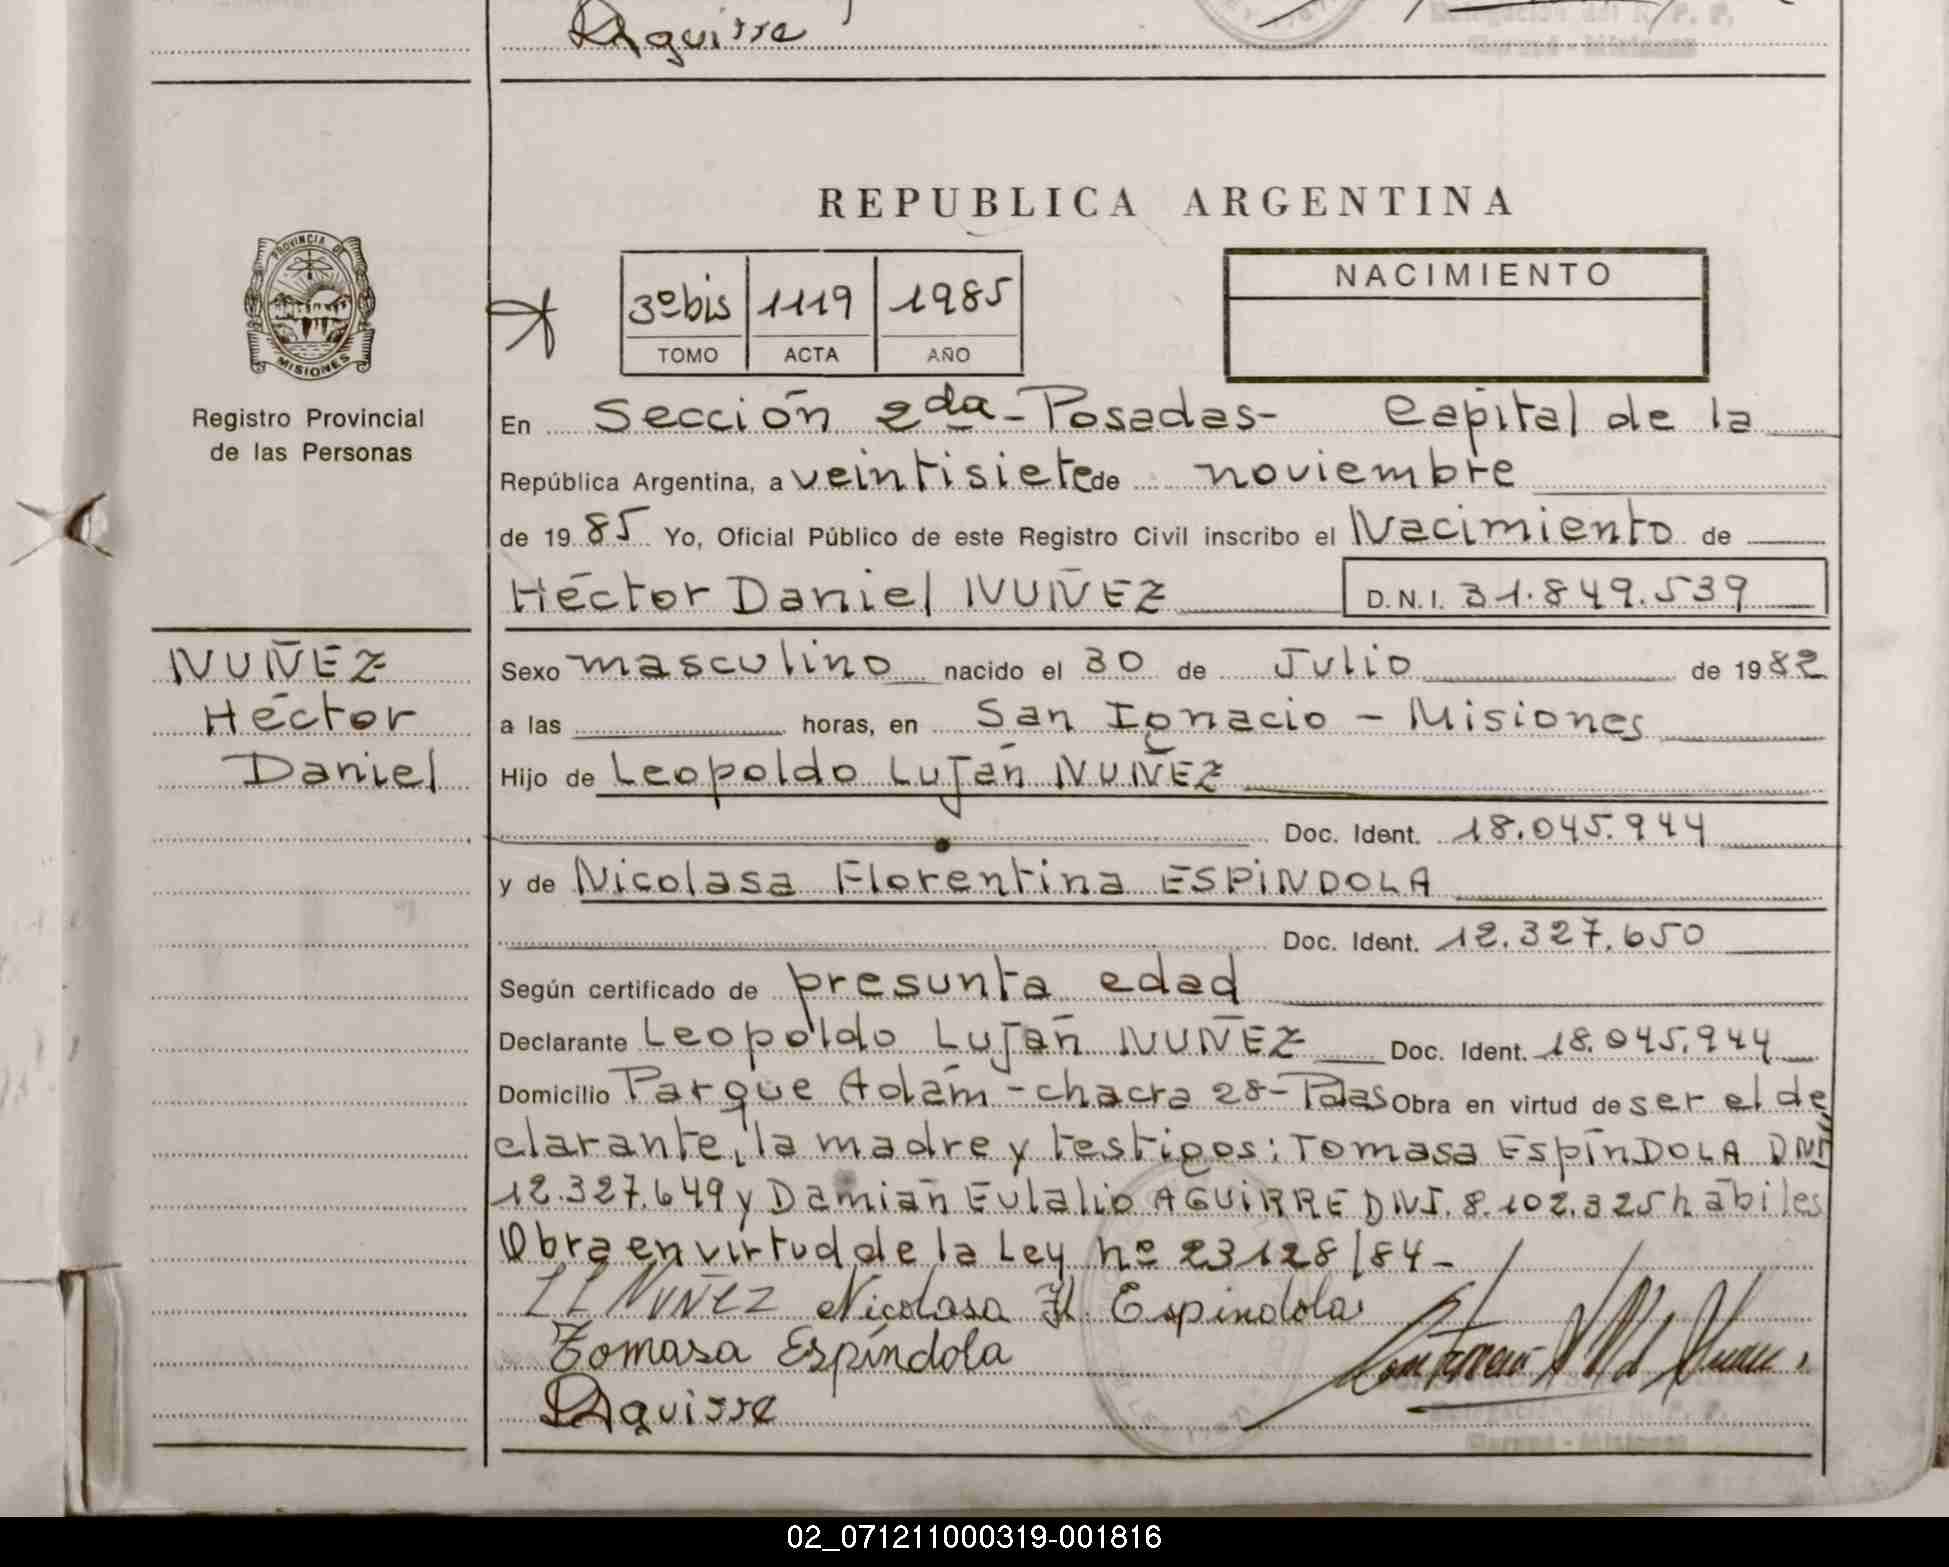 Aguirre
REPUBLICA ARGENTINA
PROVINCIA DE
MISIONES
Registro Provincial
de las Personas
3º bis 1119 1985
TOMO ACTA AÑO
NACIMIENTO
En Sección 2da - Posadas - Capital de la
República Argentina, a veintisiete de noviembre
de 1985 Yo, Oficial Público de este Registro Civil inscribo el Nacimiento de
Héctor Daniel NUÑEZ D.N.I. 31.849.539
NUÑEZ
Héctor
Daniel
Sexo masculino nacido el 30 de Julio de 1982
a las horas, en San Ignacio - Misiones
Hijo de Leopoldo Luján NUÑEZ
Doc. Ident. 18.045.944
y de Nicolasa Florentina ESPINDOLA
Doc. Ident. 12.327.650
Según certificado de presunta edad
Declarante Leopoldo Luján NUÑEZ Doc. Ident. 18.045.944
Domicilio Parque Adám - chacra 28 - Pdas Obra en virtud de ser el de
clarante, la madre y testigos: Tomasa ESPÍNDOLA DNI
12.327.649 y Damián Eulalio AGUIRRE DNI. 8.102.325 hábiles
Obra en virtud de la Ley nº 23128/84 -
LL NUÑEZ Nicolasa Fl. Espindola
Tomasa Espíndola
Aguirre
Delegación del R. P. P.
Garupá - Misiones
02_071211000319-001816